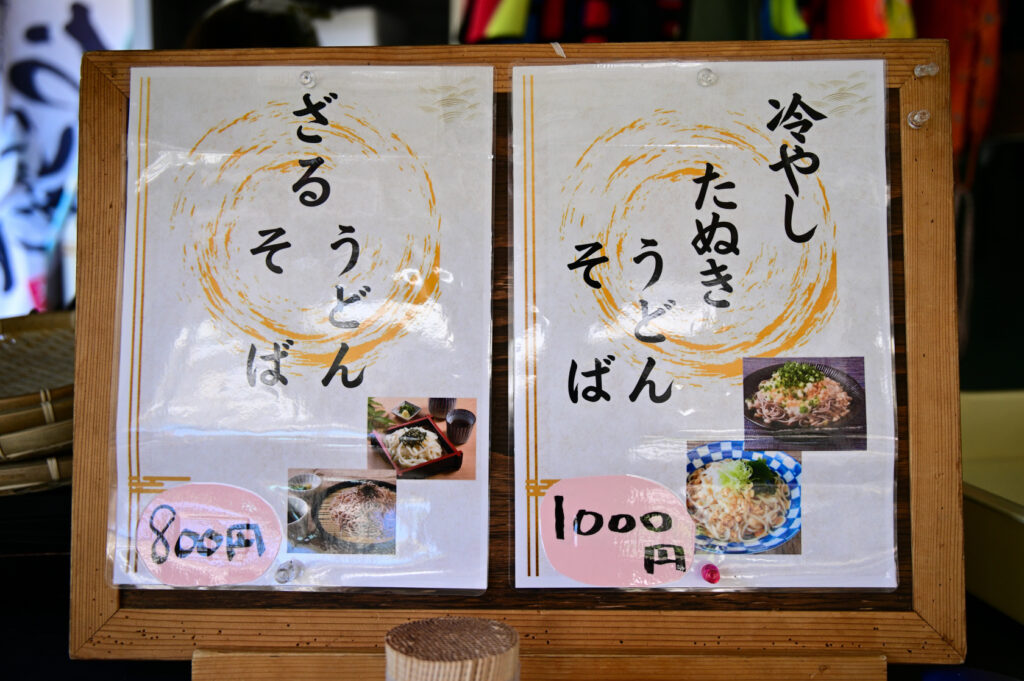 ざる
うどん
そば
800円
冷やし
たぬき
うどん
そば
1000
円